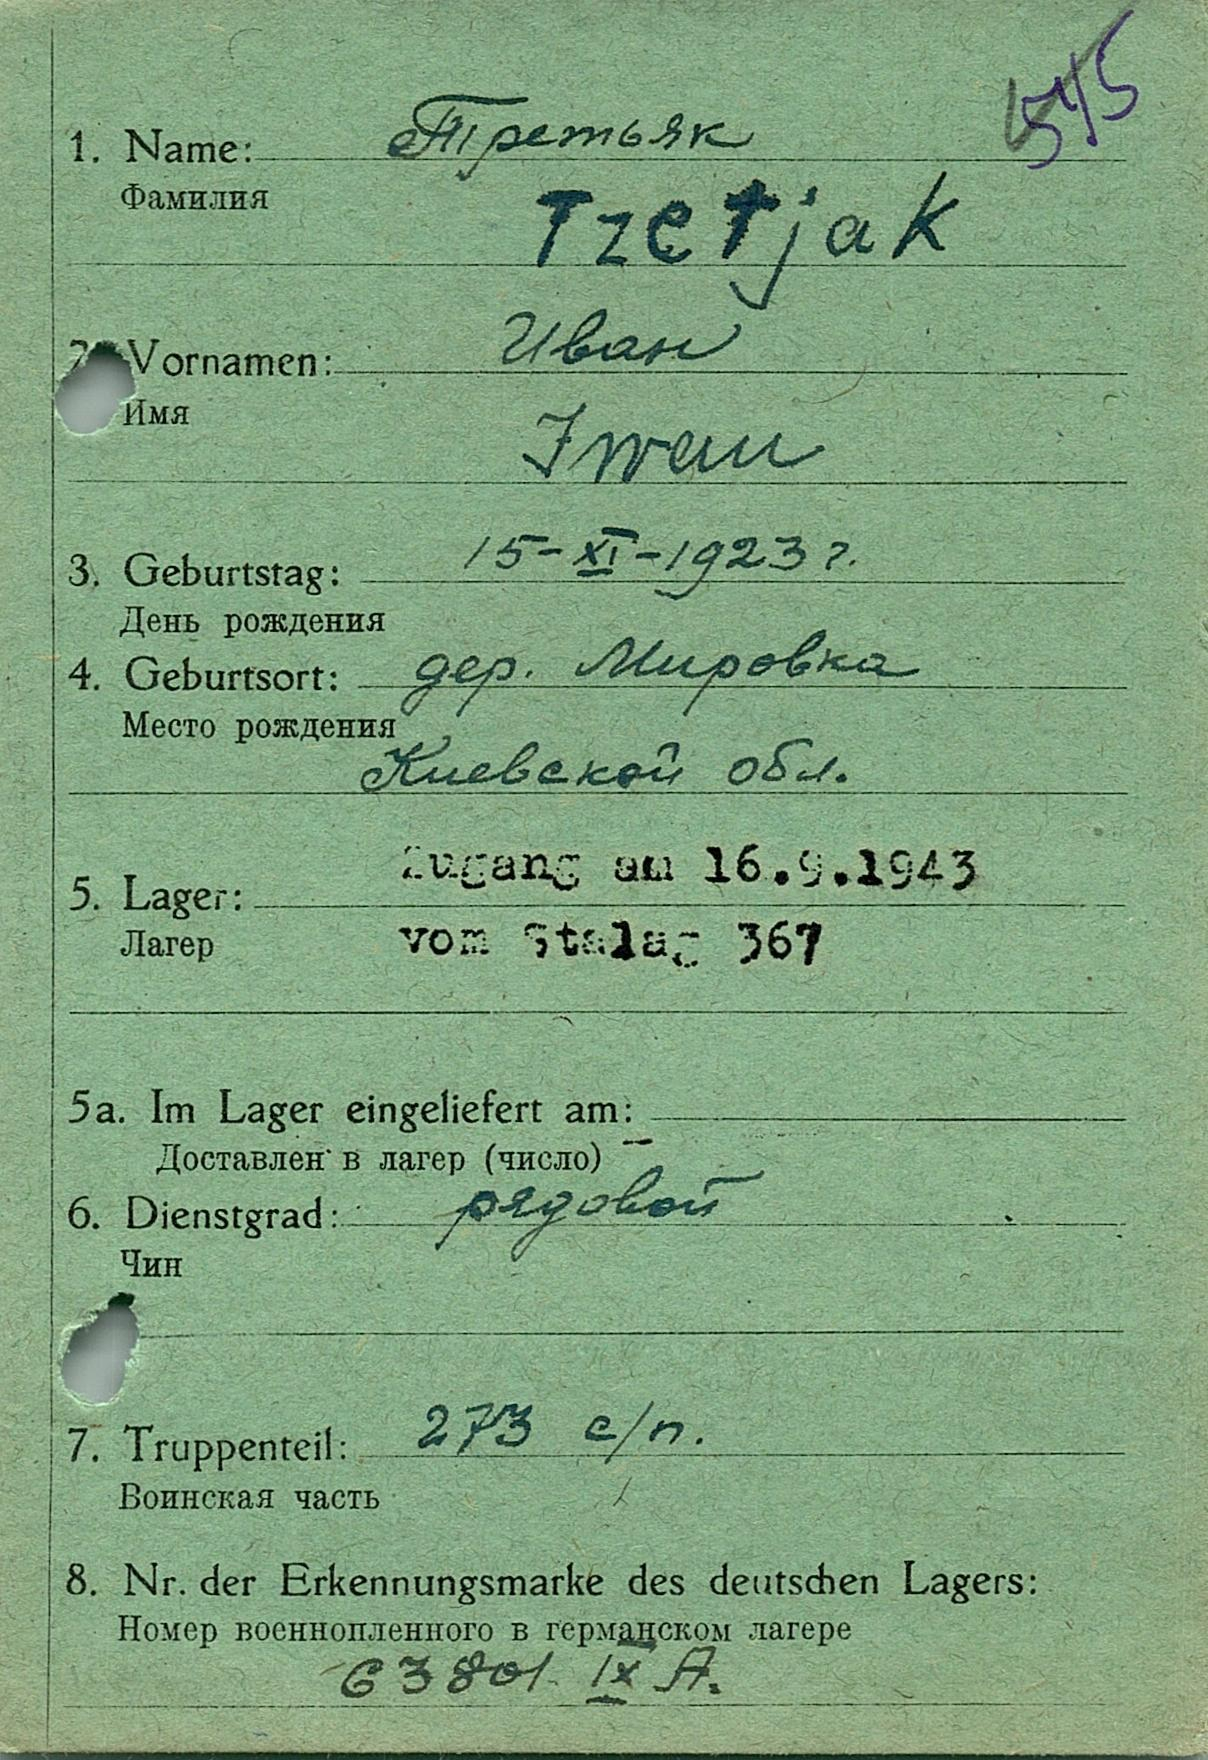 515
1. Name: Третьяк
Фамилия
Tretjak
2. Vornamen: Иван
Имя
Iwan
3. Geburtstag: 15-XI-1923 г.
День рождения
4. Geburtsort: дер. Мировка
Место рождения
Киевской обл.
Zugang am 16.9.1943
5. Lager:
Лагер vom Stalag 367
5a. Im Lager eingeliefert am:
Доставлен в лагер (число) –
6. Dienstgrad: рядовой
Чин
7. Truppenteil: 273 с/п.
Воинская часть
8. Nr. der Erkennungsmarke des deutschen Lagers:
Номер военнопленного в германском лагере
63801 IX A.